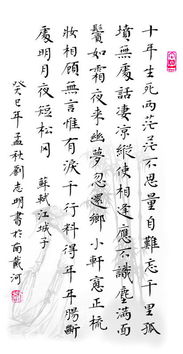 十年生死兩茫茫不思量自難忘千里孤
墳無處話淒涼縱使相逢應不識塵滿面
鬢如霜夜來幽夢忽還鄉小軒窓正梳
妝相顧無言惟有淚千行料得年年腸斷
處明月夜短松岡 蘇軾江城子
癸巳年孟秋劉志明書於南戴河